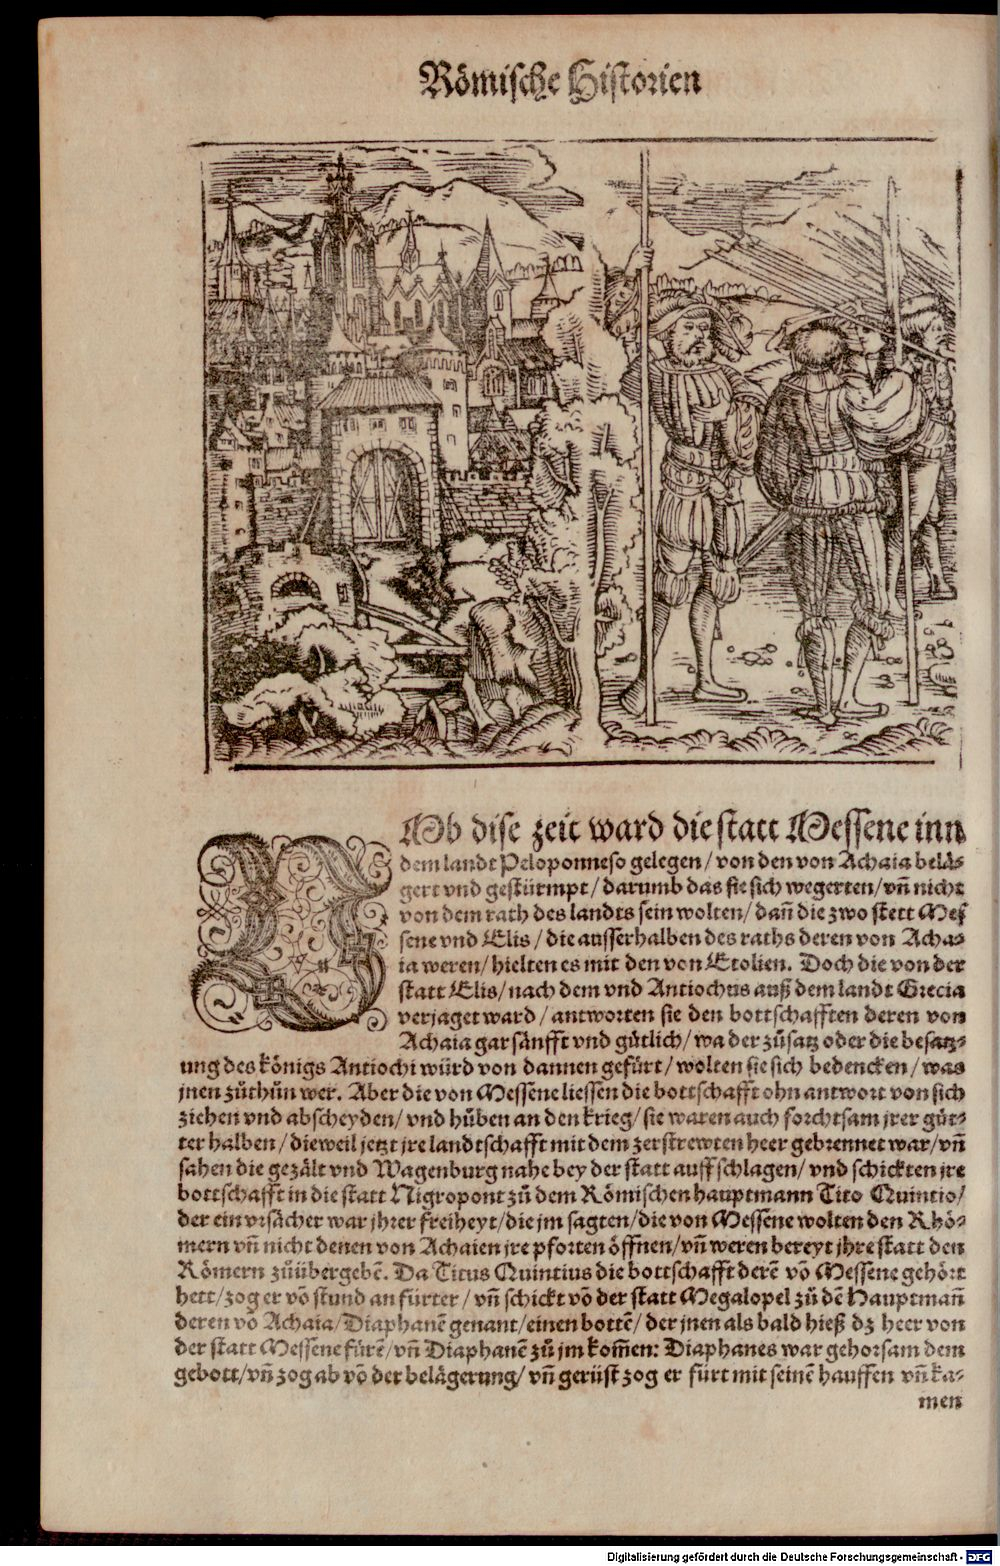 Römische Historien
VMb dise zeit ward die statt Messene inn
dem landt Peloponneso gelegen/ von den von Achaia belä⸗
gert vnd gestürmpt/ darumb das sie sich wegerten/ vñ nicht
von dem rath des landts sein wolten/ dañ die zwo stett Mes
sene vnd Elis/ die ausserhalben des raths deren von Acha⸗
ia weren/ hielten es mit den von Etolien. Doch die von der
statt Elis/ nach dem vnd Antiochus auß dem landt Grecia
verjaget ward/ antworten sie den bottschafften deren von
Achaia gar sänfft vnd gütlich/ wa der zůsatz oder die besatz⸗
ung des königs Antiochi würd von dannen gefürt/ wolten sie sich bedencken/ was
jnen zůthůn wer. Aber die von Messene liessen die bottschafft ohn antwort von sich
ziehen vnd abscheyden/ vnd hůben an den krieg/ sie waren auch forchtsam jrer güt⸗
ter halben/ dieweil jetzt jre landtschafft mit dem zerstrewten heer gebrennet war/ vñ
sahen die gezält vnd Wagenburg nahe bey der statt auffschlagen/ vnd schickten jre
bottschafft in die statt Nigropont zů dem Römischen hauptmann Tito Quintio/
der ein vrsächer war jhrer freiheyt/ die jm sagten/ die von Messene wolten den Rhö⸗
mern vñ nicht denen von Achaien jre pforten öffnen/ vñ weren bereyt jhre statt den
Römern zůübergebẽ. Da Titus Quintius die bottschafft derẽ võ Messene gehört
hett/ zog er võ stund an fürter/ vñ schickt võ der statt Megalopel zů dẽ Hauptmañ
deren võ Achaia/ Diaphanẽ genant/ einen bottẽ/ der jnen als bald hieß dz heer von
der statt Messene fürẽ/ vñ Diaphanẽ zů jm kom̃en: Diaphanes war gehorsam dem
gebott/ vñ zog ab võ der belägerung/ vñ gerüst zog er fürt mit seinẽ hauffen vñ ka⸗
men
Digitalisierung gefördert durch die Deutsche Forschungsgemeinschaft - DFG